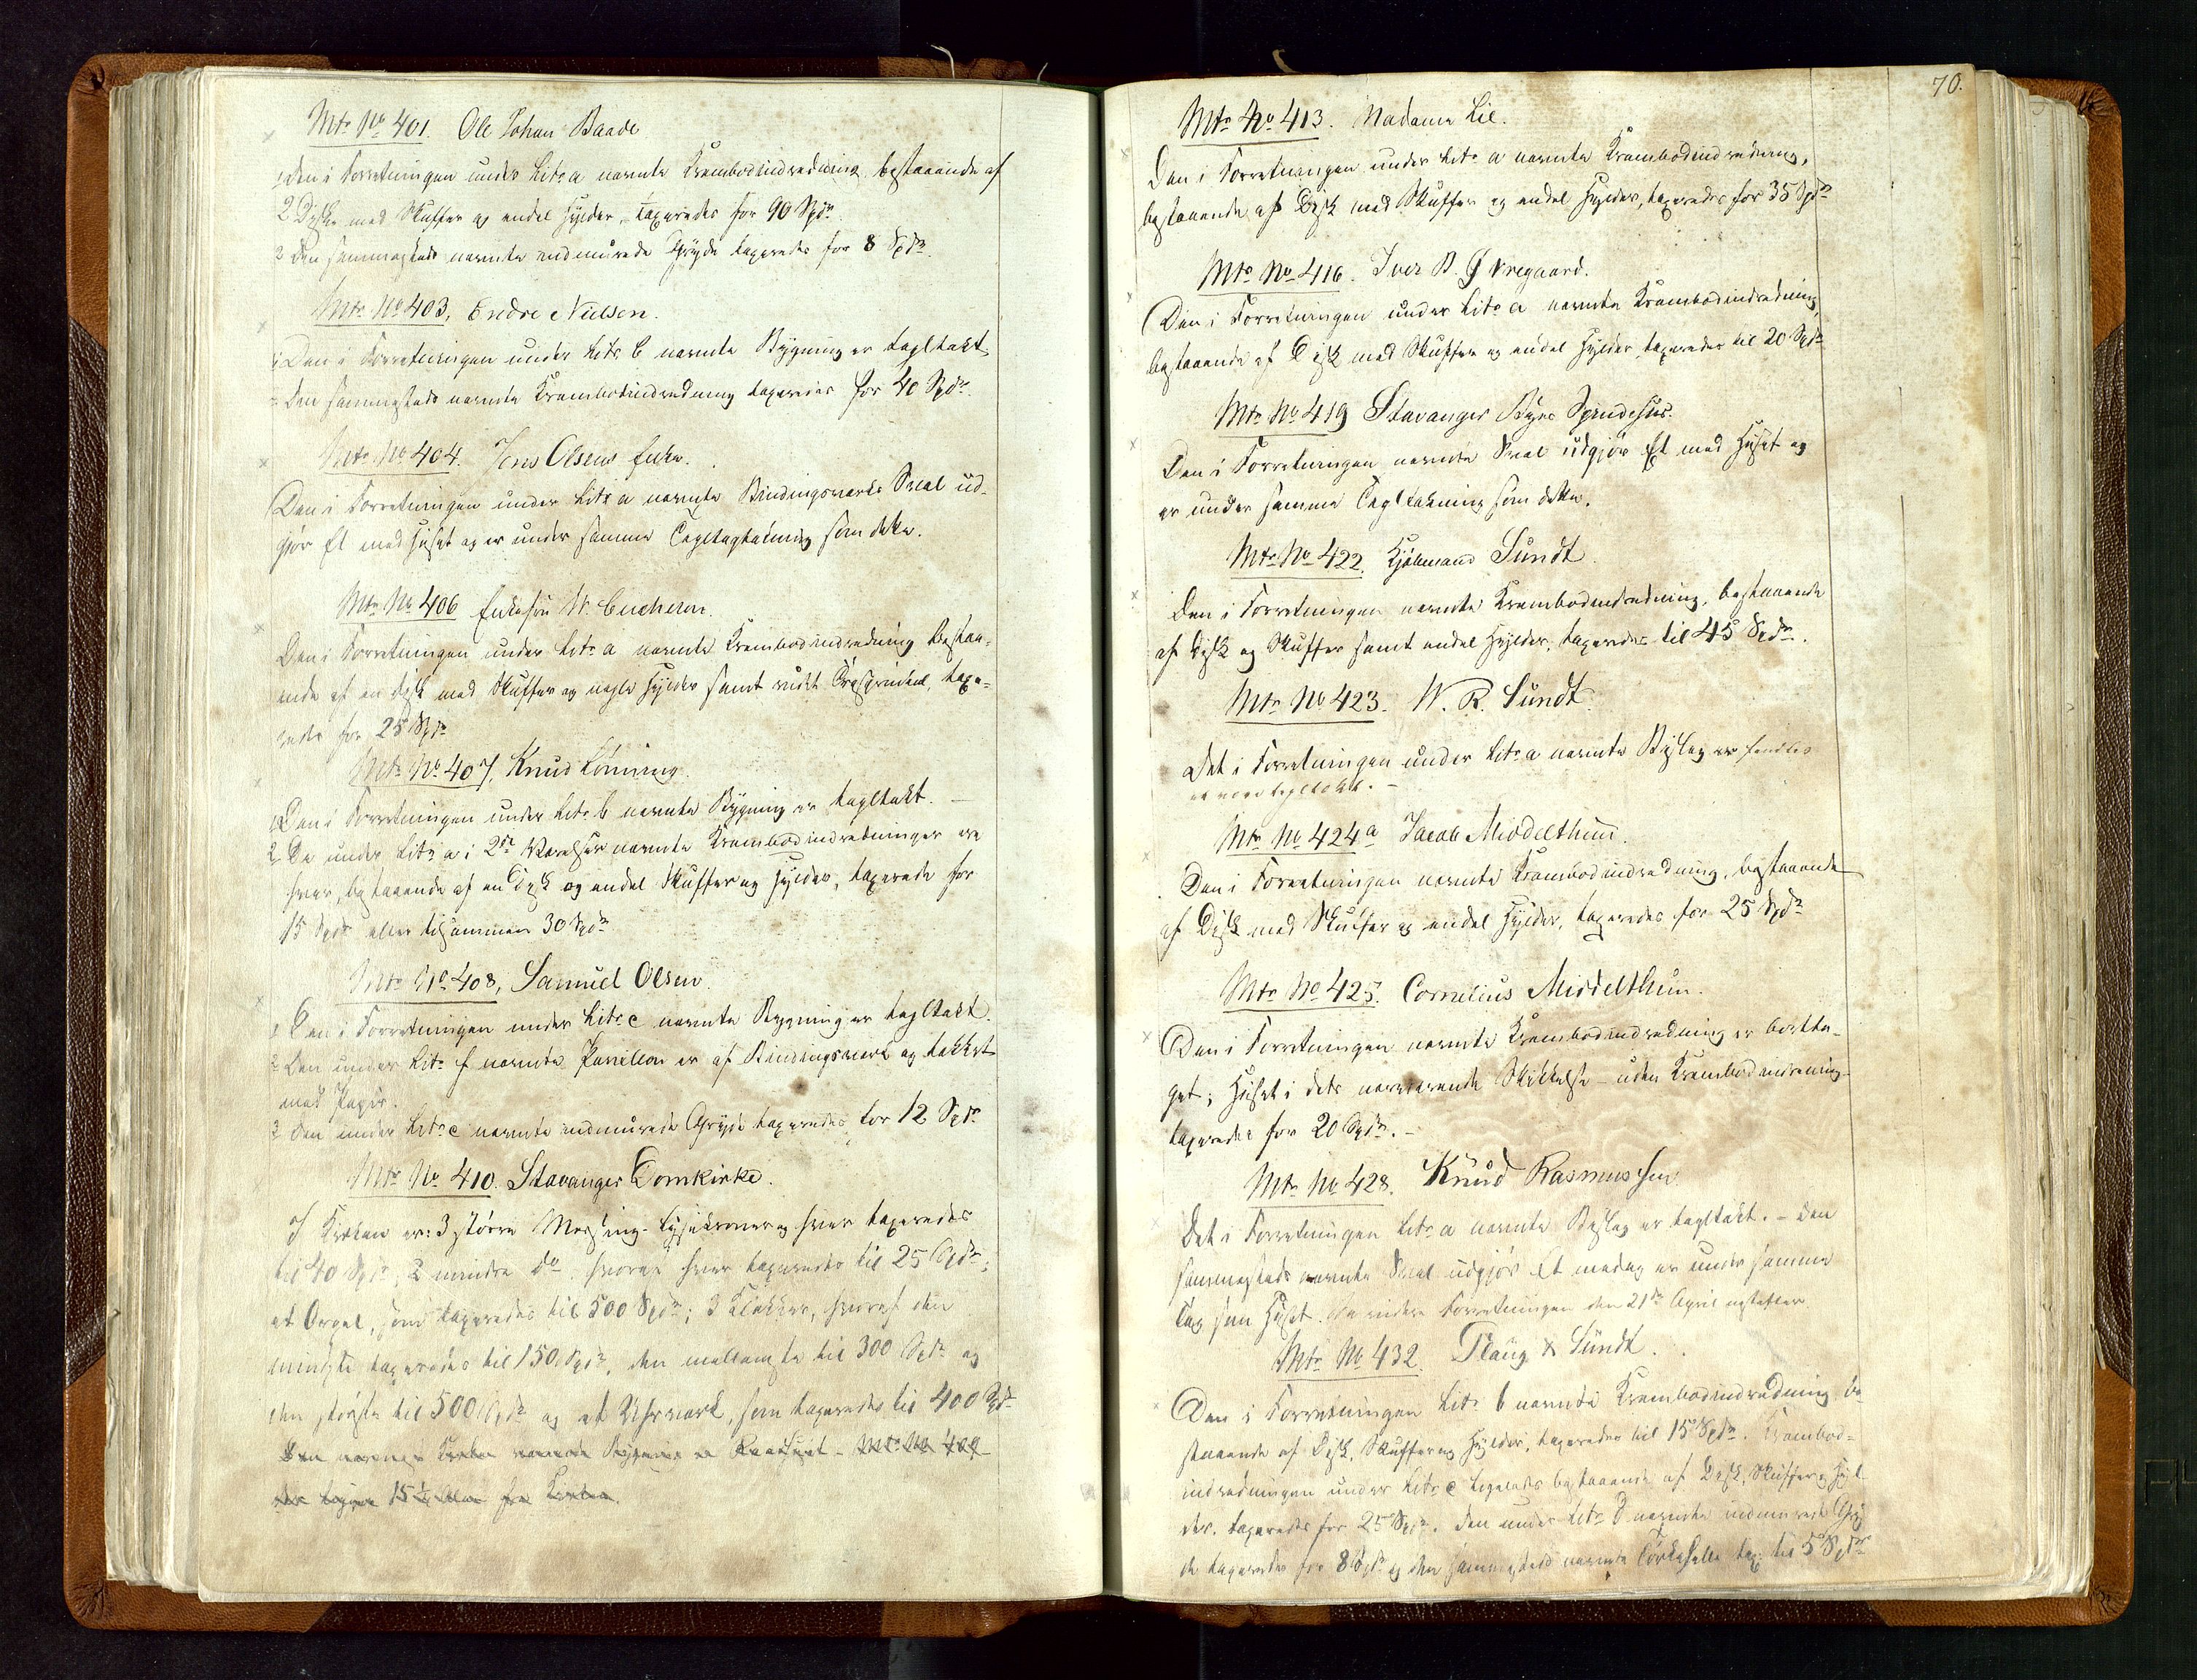 Mtr No 401. Ole Johan Baade.
1 Den i Forretningen under Litr a nævnte Krambodindredning, bestaaende af
2 Diske med Skuffer og endel Hylder, taxeredes for 90 Spdr.
2 Den sammesteds nævnte indmurede Gryde taxeredes for 8 Spdr.
Mtr No 403, Endre Nielsen.
1 Den i Forretningen under Litr b nævnte Bygning er tagltakt
2 Den sammesteds nævnte Krambodindredning taxeredes for 40 Spdr.
Mtr No 404. Jens Olsens Enke.
Den i Forretningen under Litr a nævnte Bindingsværks Sval ud-
gjør Et med Huset og er under samme Tagltagtækning som dette.
Mtr No 406 Enkefru W.
Den i Forretningen under Litr a nævnte Krambodindredning bestaa-
ende af en Disk med Skuffer og nogle Hylder samt , taxe-
redes for 25 Spdr
Mtr No 407, Knud Lönning.
1 Den i Forretningen under Litr b nævnte Bygning er tagltakt. –
2 De under Litr a i 2de Værelser nævnte Krambodindredninger ere
hver, bestaaende af en Disk og endel Skuffer og Hylder, taxerede for
15 Spdr eller tilsammen 30 Spdr
Mtr No 408, Samuel Olsen.
1 Den i Forretningen under Litr c nævnte Bygning er tagltakt.
2 Den under Litr f nævnte Pavillon er af Bindingsværk og takket
med Papir.
3 Den under Litr e nævnte indmurede Gryde taxeredes for 12 Spdr
Mtr No 410. Stavanger Domkirke.
I Kirken er: 3 större Messing-Lysekroner og hver taxeredes
til 40 Spdr; 2 mindre do hvoraf hver taxeredes til 25 Spdr;
et Orgel, som taxeredes til 500 Spdr; 3 Klokker, hvoraf den
mindste taxeredes til 150 Spdr, den mellemste til 300 Spdr og
den störste til 500 Spdr og et Uhrværk, som taxeredes til 400 Spdr
15 ½ Alen fra Kirken.
70.
Mtr No 413. Madame Lie.
Den i Forretningen under Litr a nævnte Krambodindredning,
bestaaende af Disk med Skuffer og endel Hylder, taxeredes for 35 Spdr
Mtr No 416. Iver B. Øvregaard.
Den i Forretningen under Litr a nævnte Krambodindredning,
bestaaende af Disk med Skuffer og endel Hylder taxeredes til 20 Spdr
Mtr No 419 Stavanger Byes Spindehus.
Den i Forretningen nævnte Sval udgjør Et med Huset og
er under samme Tagltækning som dette.
Mtr No 422. Kjøbmand Sundt.
Den i Forretningen nævnte Krambodindredning, bestaaende
af Disk og Skuffer samt endel Hylder, taxeredes til 45 Spdr.
Mtr No 423. W. R. Sundt.
Det i Forretningen under Litr a nævnte Bislag er
at være tagltakt. –
Mtr No 424a Jacob Middelthun.
Den i Forretningen nævnte Krambodindredning, bestaaende
af Disk med Skuffer og endel Hylder, taxeredes for 25 Spdr
Mtr No 425. Cornelius Middelthun.
Den i Forretningen nævnte Krambodindredning er bortta-
get; Huset i dets nærværende Skikkelse – uden Krambodindredning –
taxeredes for 20 Spdr. –
Mtr No 428. Knud Rasmussen.
Det i Forretningen Litr a nævnte Bislag er tagltakt. – Den
sammesteds nævnte Sval udgjør Et med og er under samme
Tag som Huset. Forretningen den 21de April
Mtr No 432. Plaug & Sundt.
Den i Forretningen Litr b nævnte Krambodindredning, be-
staaende af Disk, Skuffer og Hylder, taxeredes til 15 Spdr. Krambod-
indredningen under Litr c ligeledes bestaaende af Disk, Skuffer og Hyl-
der, taxeredes for 25 Spdr. Den under Litr d nævnte indmurede Gry-
de taxeredes for 8 Spdr og den sammesteds nævnte tax. til 5 Spdr